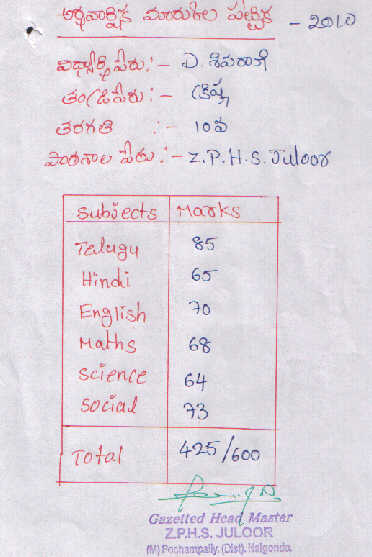 అర్థవార్షిక మారుకుల పట్టిక - 2010
విద్యార్థి పేరు:- ఎ. శివరాణి
తండ్రి పేరు:- క్రిష్ణ
తరగతి :- 10వ
పాఠశాల పేరు:- Z.P.H.S. Juloor
Subjects Marks
Telugu 85
Hindi 65
English 70
Maths 68
Science 64
Social 73
Total 425/600
Gazetted Head Master
Z.P.H.S. JULOOR
(M) Pochampally, (Dist). Nalgonda.